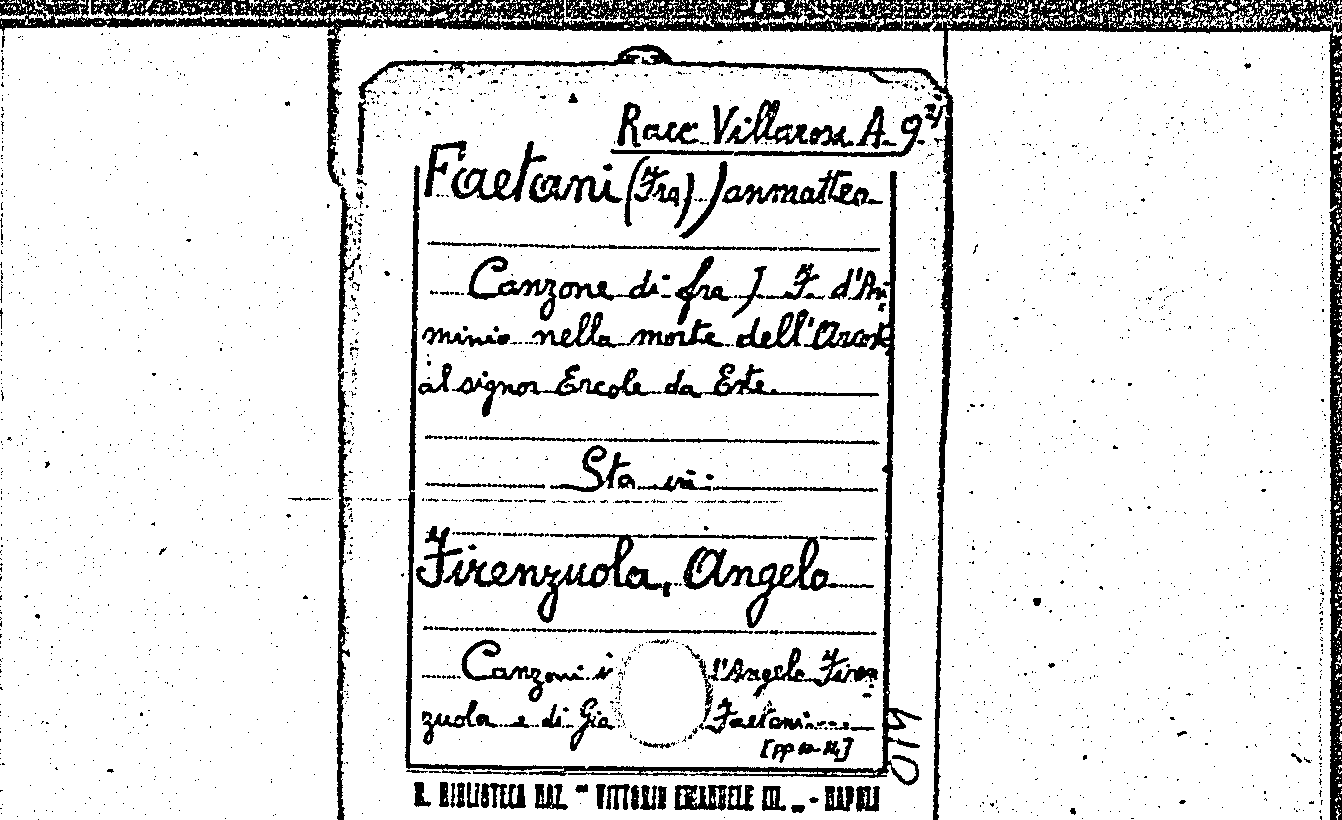 Racc Villarosa A. 9²⁴
Faetani (Fra) Janmatteo
Canzone di fra J F. d'Ari
minio nella morte dell'Ariosto
al signor Ercole da Este.
Sta in:
Firenzuola, Angelo
Canzoni i l'Angelo Firen
zuola e di Gia Faetani
[pp
R. BIBLIOTECA NAZ. "VITTORIO EMANUELE III." - NAPOLI